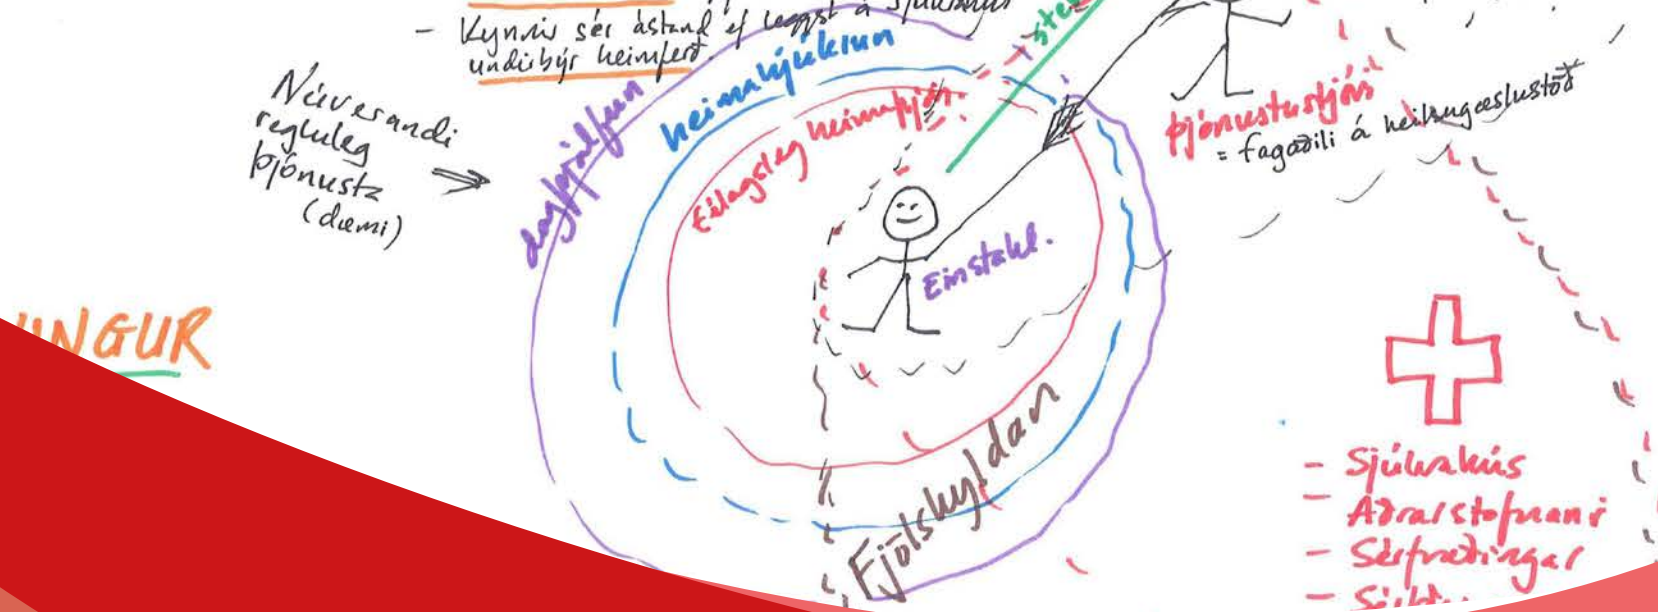 - Kynnir sér ástand ef leggst á sjúkrahús
undirbýr heimferð.
Núverandi
regluleg
þjónusta
(dæmi)
dagþjálfun
heimahjúkrun
Félagsleg heimaþjón.
Einstakl.
Fjölskyldan
þjónustustjóri
= fagaðili á heilsugæslustöð
NGUR
- Sjúkrahús
- Aðrar stofnanir
- Sérfræðingar